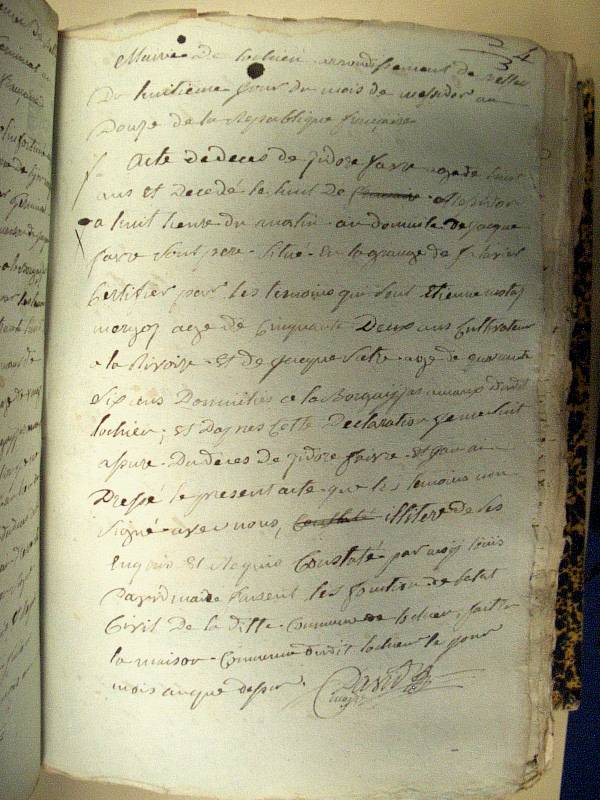 Mairie de lochieu arrondissement de belley
Du huitieme jour du mois de messidor an
Douze de la Republique française
Acte de deces de jidore favre age de huit
ans Et Decedé le huit De messidor
a huit heure du matin au domicile de jaque
favre sont pere situé En la grange de
Certifier par les temoins qui sont Etienne
age de Cinquante Deux ans Cultivateur
a la Rivoire Et de jacque age de quarante
six ans Domicilies a la dudit
lochieu, Et Dapres Cette Declaration je me suit
asure Du deces De jidore favre Et jan ai
Dressé le present acte que les temoins non
signé avec nous, Constaté illitere de les
Enquis Et Requis Constaté par moy louis
David maire faisent les fonction de letat
Civil De la ditte Commune de lochieu, fait a
la maison Commune dudit lochieu le jour
mois an que dessus. David
maire